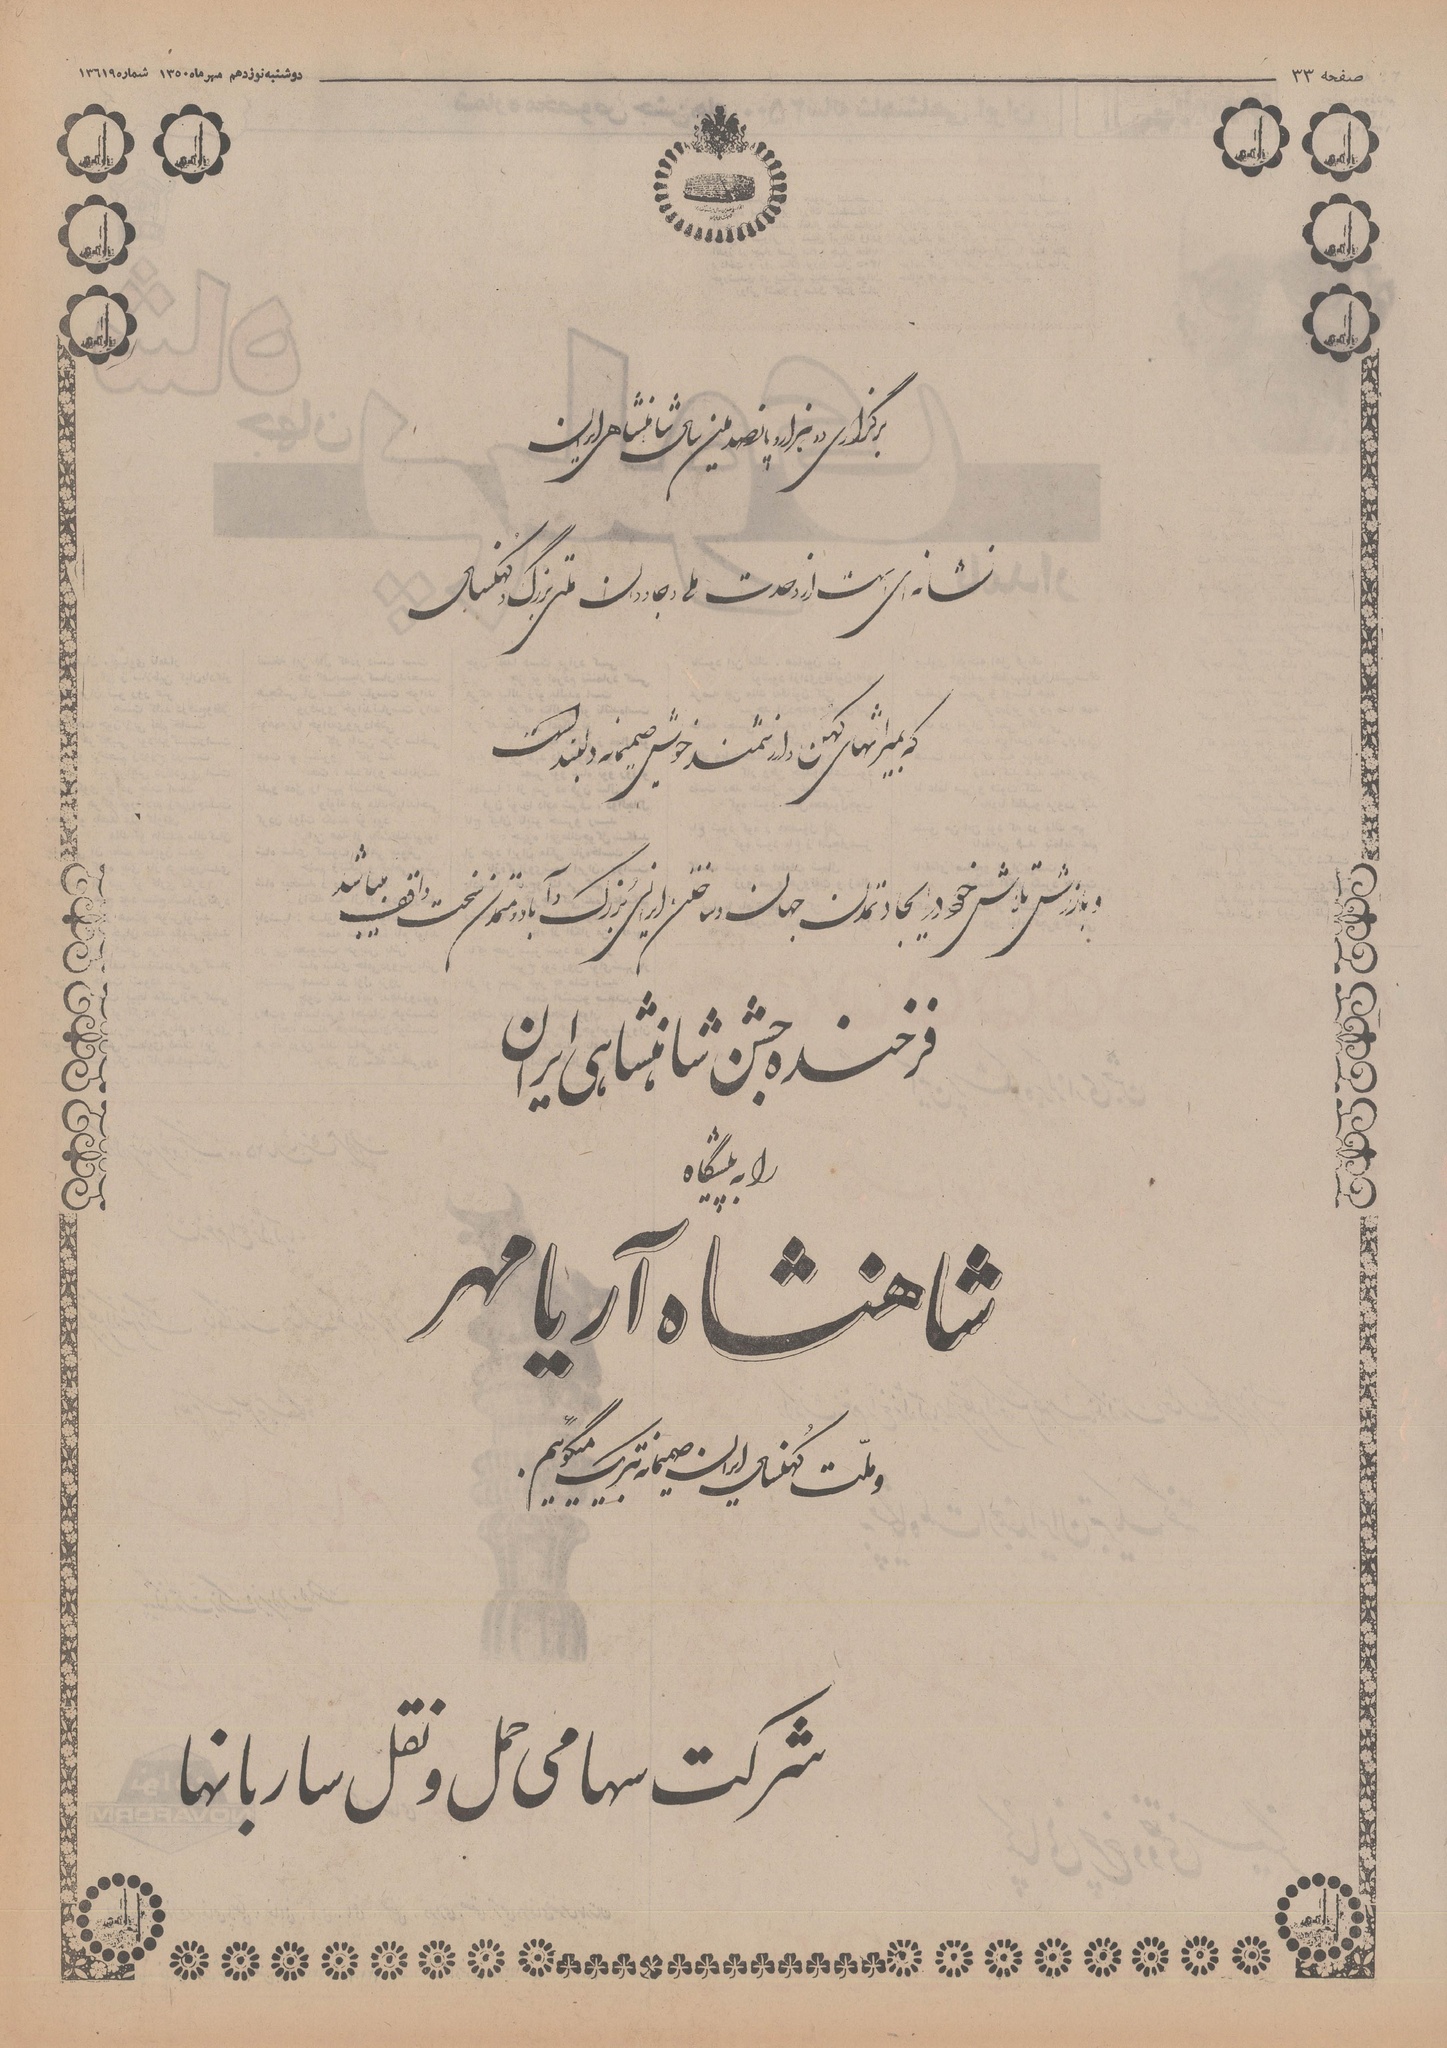 صفحه ۳۳
دوشنبه نوزدهم مهر ماه ۱۳۵۰ شماره ۱۳۶۱۹
برگزاری دو هزار و پانصدمین سال شاهنشاهی ایران
نشانه‌ای است از وحدت ملی و جاودان ملتی بزرگ و کهنسال
که بمیراثهای کهن و ارزشمند خویش صمیمانه دلبند است
و بارزش تلاش خود در ایجاد تمدن جهان و ساختن ایرانی بزرگ و آباد و متمدن سخت واقف میباشد
فرخنده جشن شاهنشاهی ایران
را به پیشگاه
شاهنشاه آریامهر
و ملّت کُهنسال ایران صمیمانه تبریک میگوئیم .
شرکت سهامی حمل و نقل ساربانها